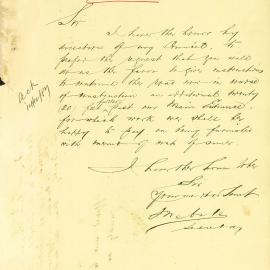 Sir
I have the honor by
direction of my Council to
prefer the request that you will
do us the favor to give instructions
to extend the road now in course
of construction an additional twenty
feet past our Main Entrance
for which work we shall be
happy to pay on being furnished
with memo of cost of same
I have the honor to be
Sir
Your most obt Servant
Secretary
Ack